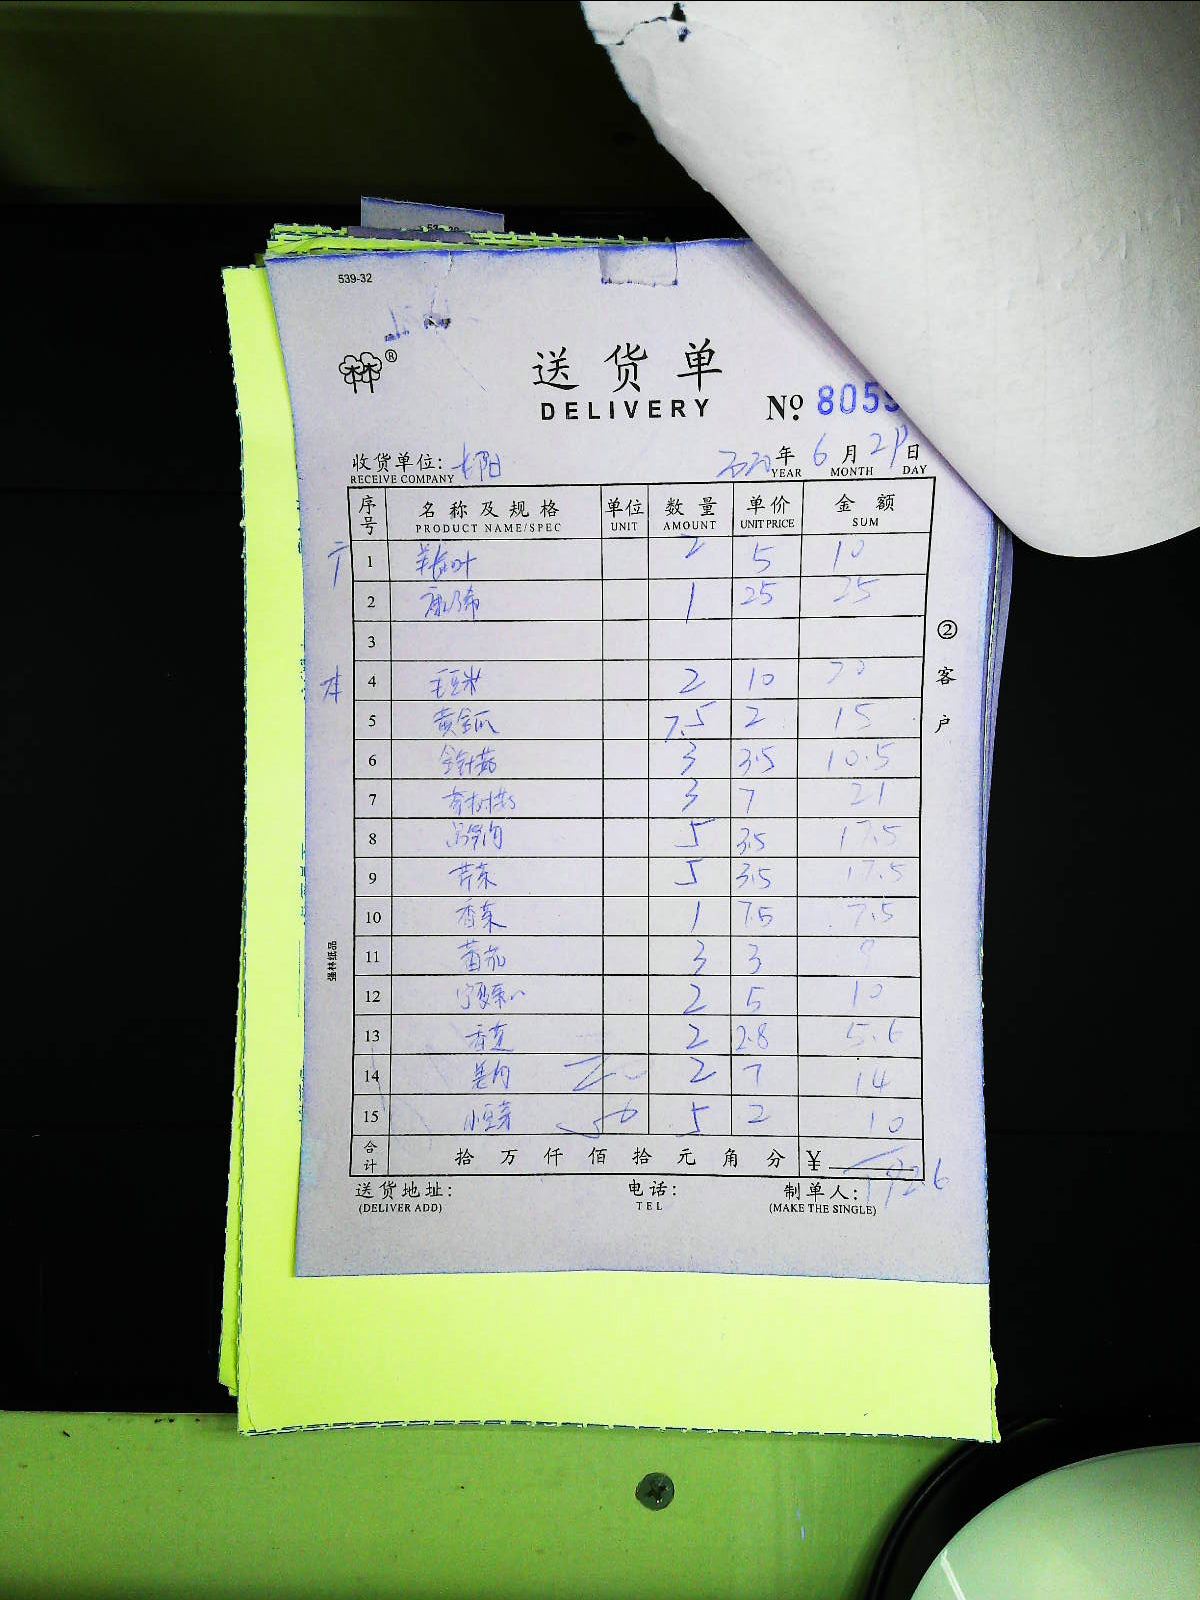 539-32
林®
送货单
DELIVERY
№ 805
收货单位: 长阳 2020年 6月 29日
RECEIVE COMPANY YEAR MONTH DAY
序号 名称及规格 单位 数量 单价 金额
PRODUCT NAME/SPEC UNIT AMOUNT UNIT PRICE SUM
1 2 5 10
2 1 25 25
3
本 4 毛豆米 2 10 20
5 黄金瓜 7.5 2 15
6 金针菇 3 3.5 10.5
7 3 7 21
8 5 3.5 17.5
9 芹菜 5 3.5 17.5
10 香菜 1 7.5 7.5
11 番茄 3 3 9
12 2 5 10
13 2 2.8 5.6
14 2 7 14
15 小豆芽 5 2 10
合计 拾 万 仟 佰 拾 元 角 分 ¥ 192.6
送货地址: 电话: 制单人:
(DELIVER ADD) TEL (MAKE THE SINGLE)
② 客户
强林纸品